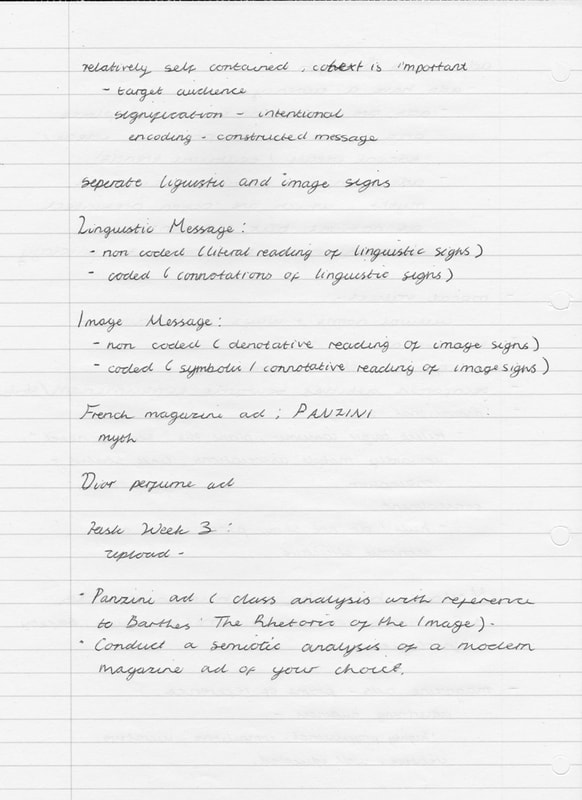 relatively self contained, context is important
- target audience
signification - intentional
encoding - constructed message
seperate liguistic and image signs
Linguistic Message:
- non coded (literal reading of linguistic signs)
- coded (connotations of linguistic signs)
Image Message:
- non coded (denotative reading of image signs)
- coded (symbolic / connotative reading of image signs)
French magazine ad ; PANZINI
myth
Dior perfume ad
Task Week 3:
upload -
· Panzini ad (class analysis with reference
to Barthes' The Rhetoric of the Image).
· Conduct a semiotic analysis of a modern
magazine ad of your choice.